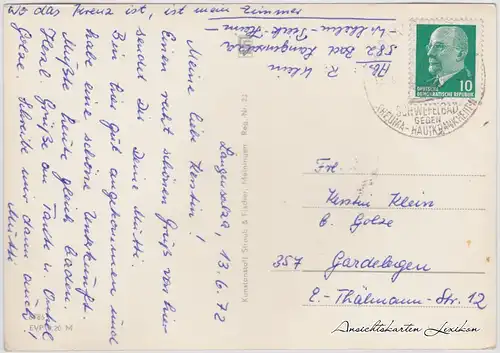 Wo das Kreuz ist, ist mein Zimmer
Abs.: R. Klein
582 Bad Langensalza
-Wilhelm-Pieck-Heim-
Langensalza, 13.6.72
Meine liebe Kerstin!
Einen recht schönen Gruß von hier
sendet Dir Deine Mutti.
Bin hier gut angekommen und
habe eine schöne Unterkunft.
Mußte heute gleich baden.
Herzl. Grüße an Tante u. Onkel
Golze. Schreibt mir dann auch!
Mutti
EVP M
Kunstanstalt Straub & Fischer, Meiningen
Reg. Nr.
10
DEUTSCHE
DEMOKRATISCHE REPUBLIK
SCHWEFELBAD
GEGEN
RHEUMA-HAUTKRANKHEITEN
Frl.
Kerstin Klein
b. Golze
357 Gardelegen
E.-Thälmann-Str. 12
Ansichtskarten Lexikon